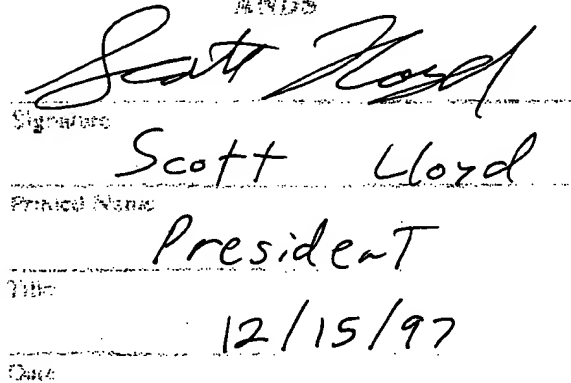 ANDS
Scott Lloyd
Signature
Scott Lloyd
Printed Name
President
Title
12/15/97
Date